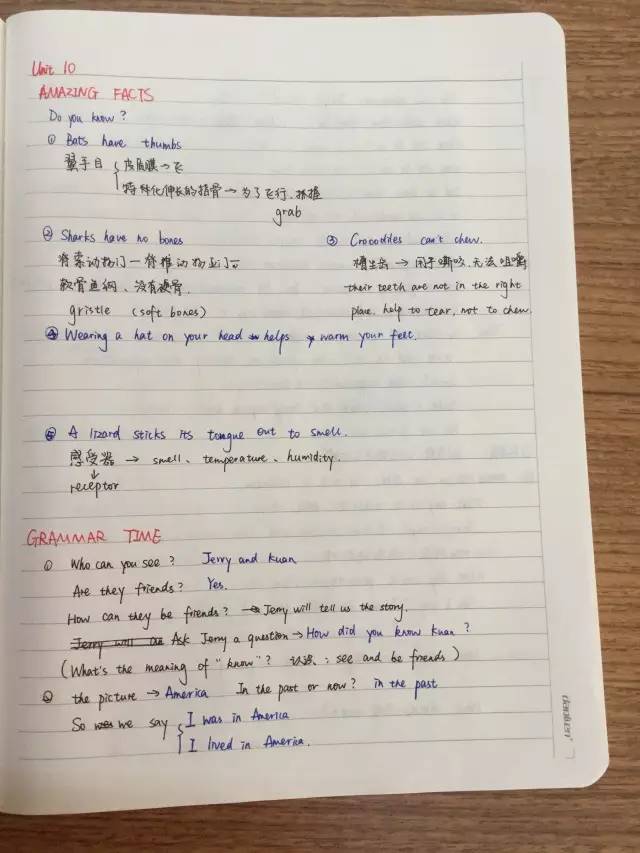 Unit 10
AMAZING FACTS
Do you know?
① Bats have thumbs
翼手目 { 皮肩膜→飞
特殊化伸长的指骨→为了飞行、抓握
grab
② Sharks have no bones
脊索动物门一脊椎动物亚门
软骨鱼纲、没有硬骨
gristle (soft bones)
③ Crocodiles can't chew.
槽生齿 → 用于嘶咬,无法咀嚼
their teeth are not in the right
place. help to tear, not to chew.
④ Wearing a hat on your head helps warm your feet.
⑤ A lizard sticks its tongue out to smell.
感受器 → smell、temperature、humidity.
↓
receptor
GRAMMAR TIME
① Who can you see? Jerry and Kuan
Are they friends? Yes.
How can they be friends? → Jerry will tell us the story.
Jerry will Ask Jerry a question → How did you know Kuan?
(What's the meaning of "know"? 认识: see and be friends)
② the picture → America In the past or now? in the past
So we say { I was in America
I lived in America.